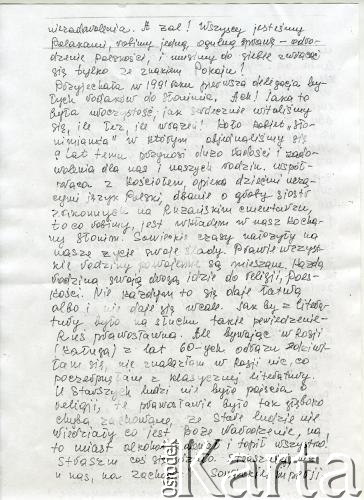 niezadowolenia. A żal! Wszyscy jesteśmy
Polakami, robimy jedną ogulną sprawę - odro-
dzenie polskości, i musimy do siebie zwracać
się tylko ze znakiem Pokoju!
Przyjechała w 1991 roku pierwsza delegacja by-
łych rodaków do Słonima. Ach! Jaka to
była uroczystość, jak serdecznie witaliśmy
się, ile łez, ile wrażeń! Koło kobiet "Sło-
nimianka" w którym objednaliśmy się
9 lat temu przynosi dużo radości i zado-
wolenia dla nas i naszych rodzin. Współ-
praca z Kościołem, opieka dziećmi uczą-
cymi język Polski, dbanie o groby siostr
zakonnych na Rużańskim cmentarzu,
to co robimy, jest wkładem w nasz kocha-
ny Słonim. Sowieckie czasy nałożyły na
nasze życie swoje ślady. Prawie wszyst-
kie rodziny powojenne są mieszane. Każda
rodzina swoją drogą idzie do religii, Pols-
kości. Nie każdym to się daje łatwo
albo i nie daje się wcale. Jak by z litera-
tury było na słuchu takie powiedzenie -
Ruś prawosławna. Ale bywając w Rosji
(Kaługa) z lat 60-ych odrazu zdziwi-
łam się, nie znalazłam w Rosji nic, co
poczerpnęłam z klasycznej literatury.
U starszych ludzi nie było pojęcia o
religii, te prawosławie było tak głęboko
chyba zachowane, że stare ludzie nie
wiedziały co jest Boże Narodzenie, na-
to miast alkohol i topił wszystko!
Straszne coś
u nas, na zachodzie Sowieckiej imperii
ośrodek
Karta